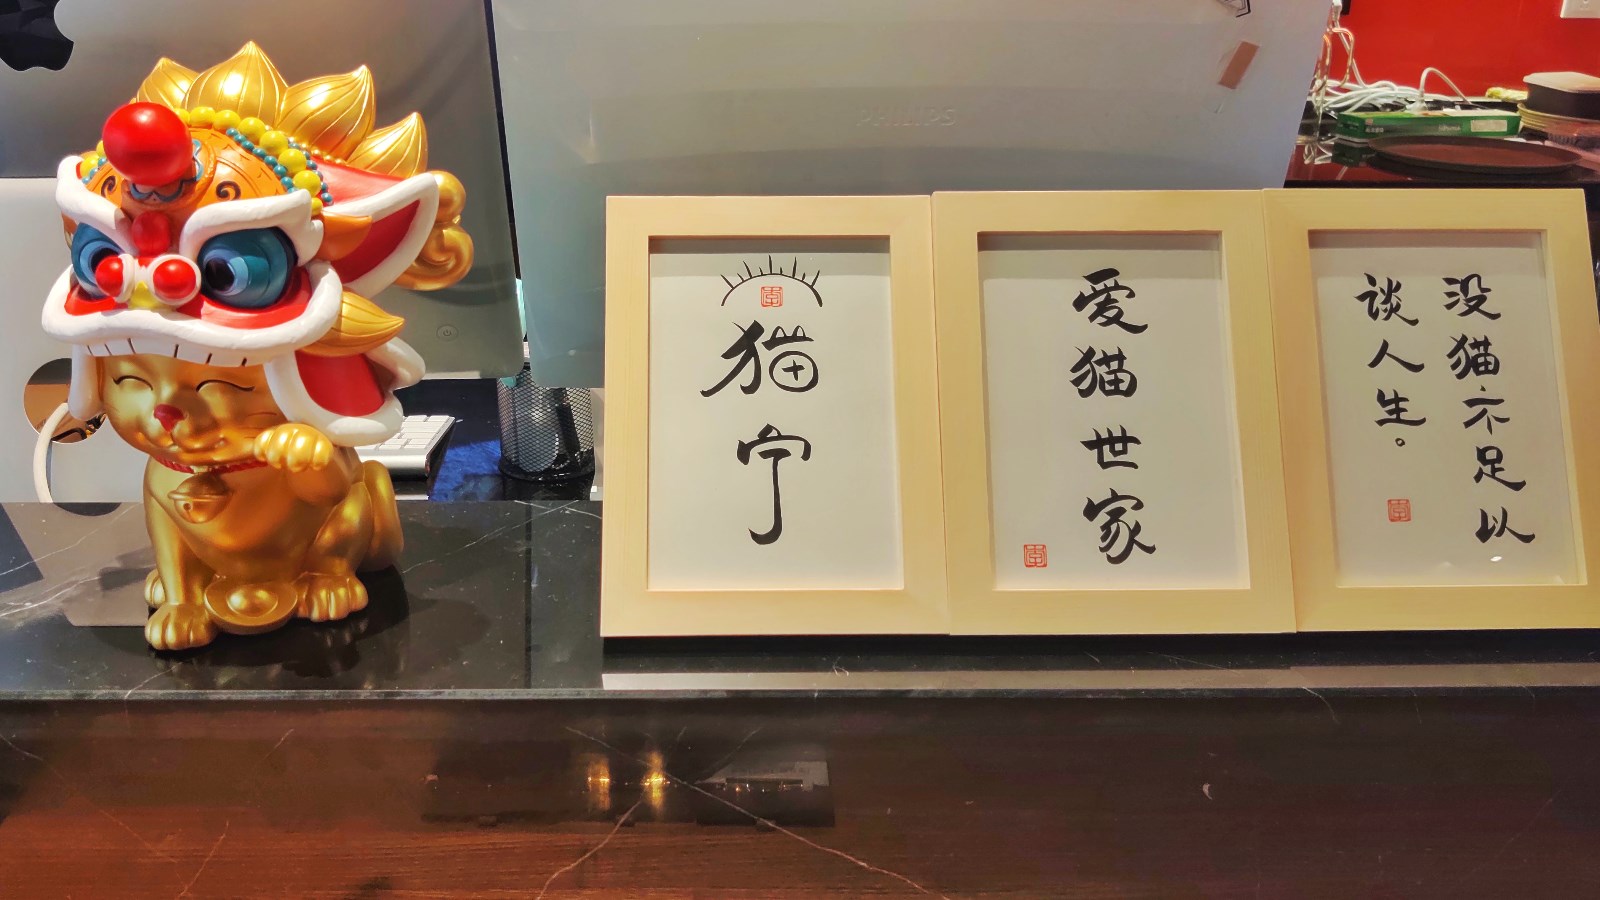 PHILIPS
猫宁
爱猫世家
没猫不足以
谈人生。